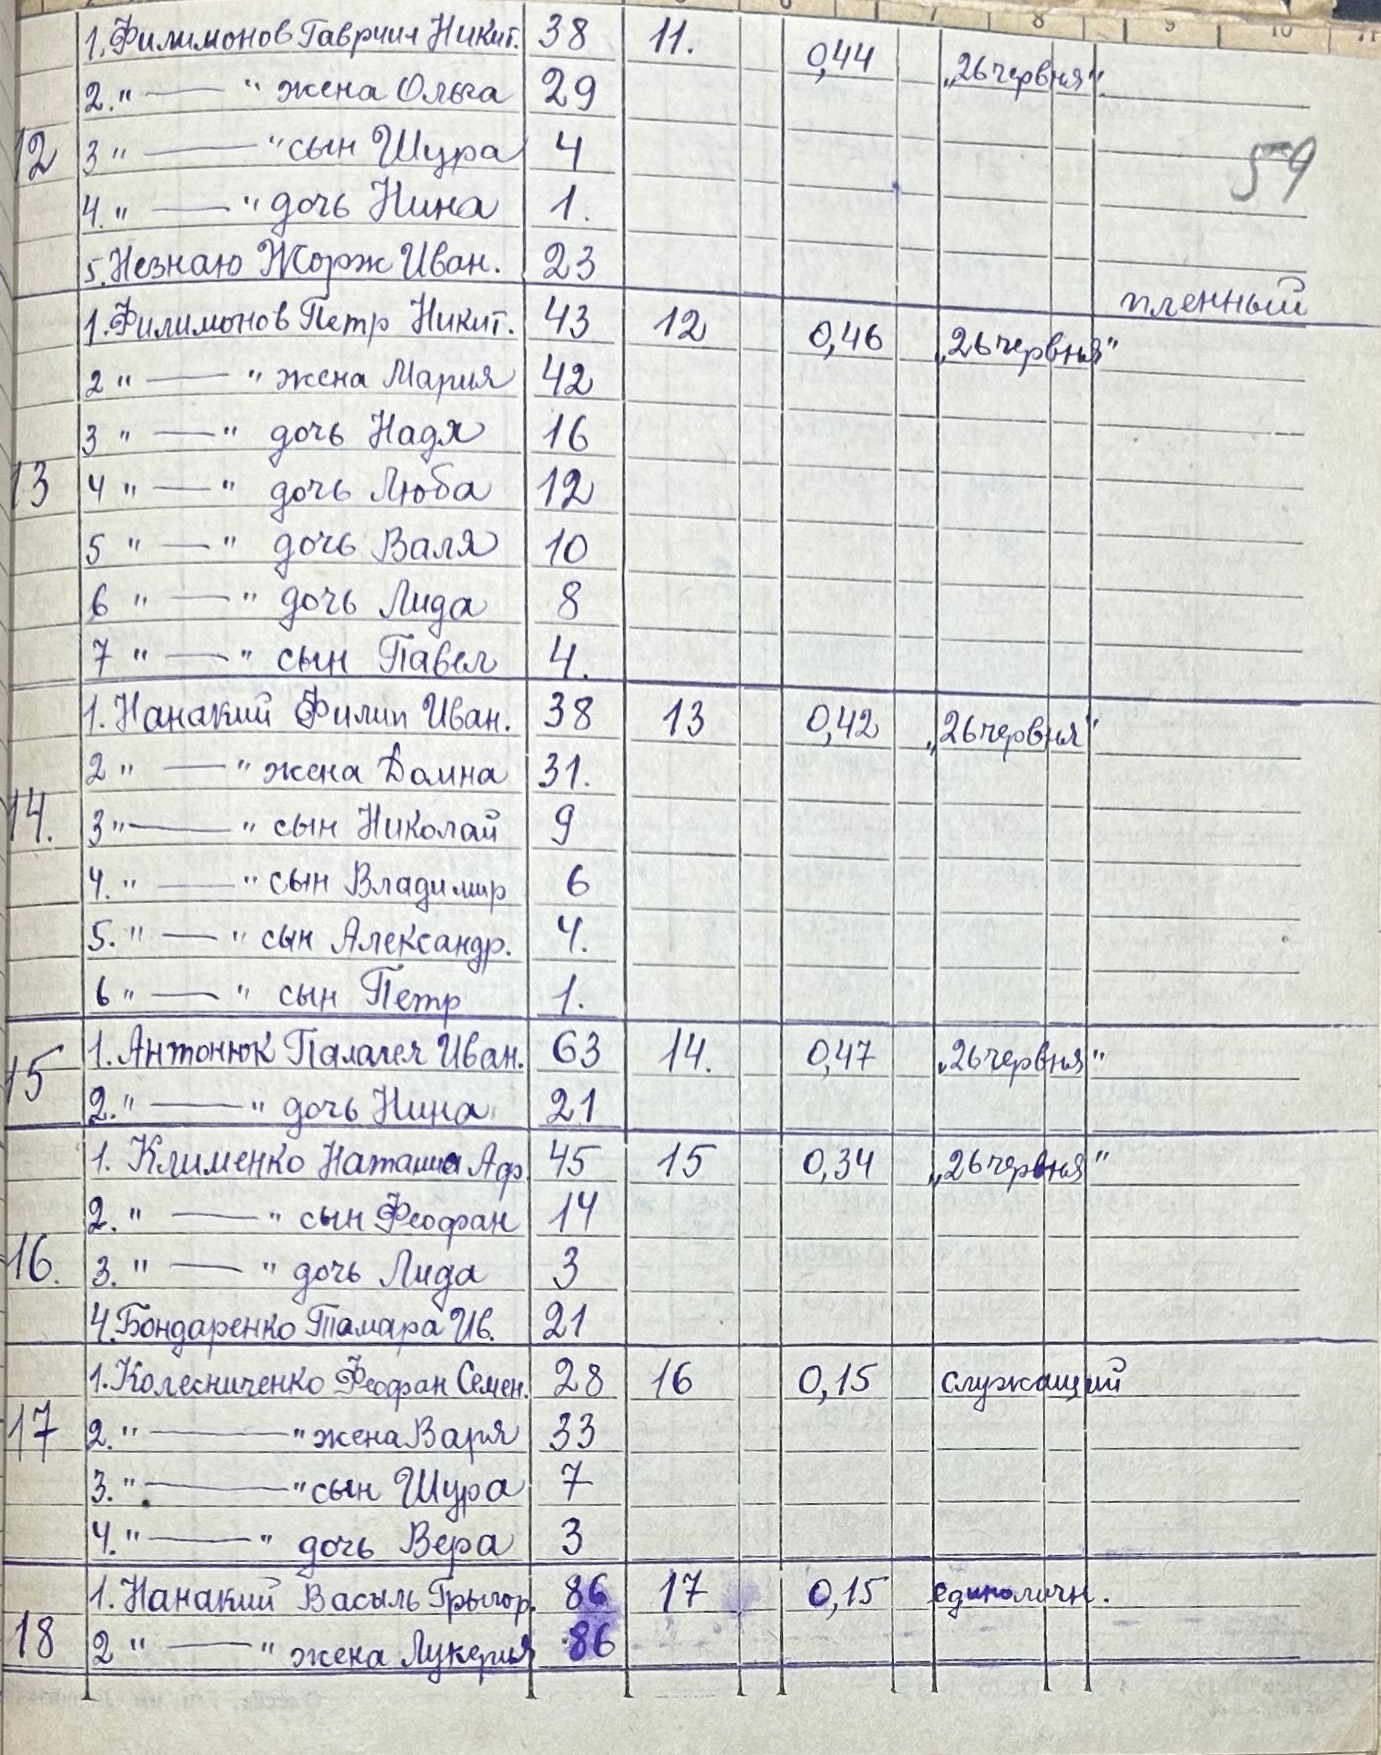 1. Филимонов Гавриил Никит. 38 11. 0,44 „26 червня"
2. " — " жена Ольга 29
12 3 " — " сын Шура 4 59
4. " — " дочь Нина 1.
5. Незнаю Жорж Иван. 23 пленный
1. Филимонов Петр Никит. 43 12 0,46 „26 червня"
2 " — " жена Мария 42
3 " — " дочь Надя 16
13 4 " — " дочь Люба 12
5 " — " дочь Валя 10
6 " — " дочь Лида 8
7 " — " сын Павел 4.
1. Нанакий Филип Иван. 38 13 0,42 „26 червня"
2 " — " жена Домна 31.
14. 3 " — " сын Николай 9
4. " — " сын Владимир 6
5. " — " сын Александр. 4.
6 " — " сын Петр 1.
15 1. Антонюк Палагея Иван. 63 14. 0,47 „26 червня"
2. " — " дочь Нина 21
1. Клименко Наташа Аф. 45 15 0,34 „26 червня"
2. " — " сын Феофан 14
16. 3. " — " дочь Лида 3
4. Бондаренко Тамара Ив. 21
1. Колесниченко Феофан Семен. 28 16 0,15 служащий
17 2. " — " жена Варя 33
3. " — " сын Шура 7
4. " — " дочь Вера 3
1. Нанакий Васыль Грыгор. 86 17 0,15 единоличн.
18 2 " — " жена Лукерия 86